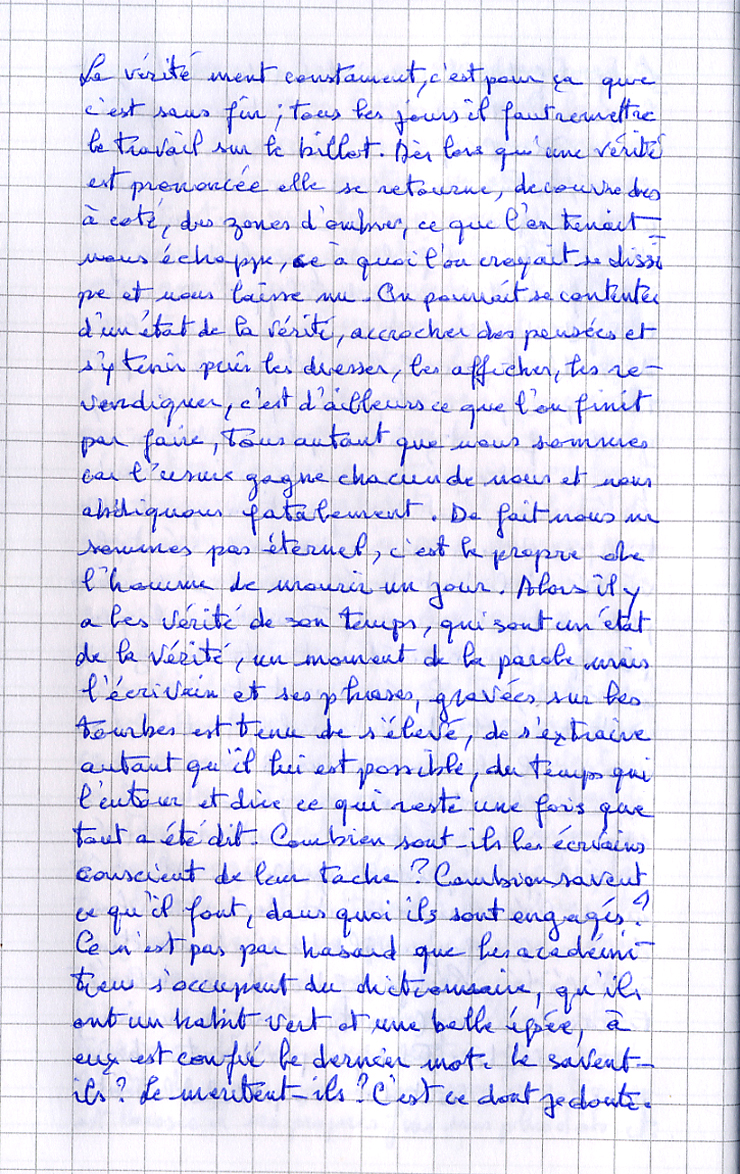 La vérité ment constament, c'est pour ça que
c'est sans fin ; tous les jours il faut remettre
le travail sur le billot. Dès lors qu'une vérité
est prononcée elle se retourne, decouvre des
à coté, des zones d'ombres, ce que l'on tenait
nous échappe, ce à quoi l'on croyait se dissi
pe et nous laisse nu. On pourrait se contenter
d'un état de la vérité, accrocher des pensées et
s'y tenir puis les dresser, les afficher, les re-
vendiquer, c'est d'ailleurs ce que l'on finit
par faire, tous autant que nous sommes
car l'usure gagne chacun de nous et nous
abdiquons fatalement. De fait nous ne
sommes pas éternel, c'est le propre de
l'homme de mourir un jour. Alors il y
a les vérité de son temps, qui sont un état
de la vérité, un moment de la parole mais
l'écrivain et ses phrases, gravées sur les
tourbes est tenu de s'élevé, de s'extraire
autant qu'il lui est possible, du temps qui
l'entour et dire ce qui reste une fois que
tout a été dit. Combien sont-ils les écrivains
conscient de leur tache ? Combien savent
ce qu'il font, dans quoi ils sont engagés ?
Ce n'est pas par hasard que les académi
tien s'occupent du dictionnaire, qu'ils
ont un habit vert et une belle épée, à
eux est confié le dernier mot. Le savent-
ils ? Le meritent-ils ? C'est ce dont je doute.